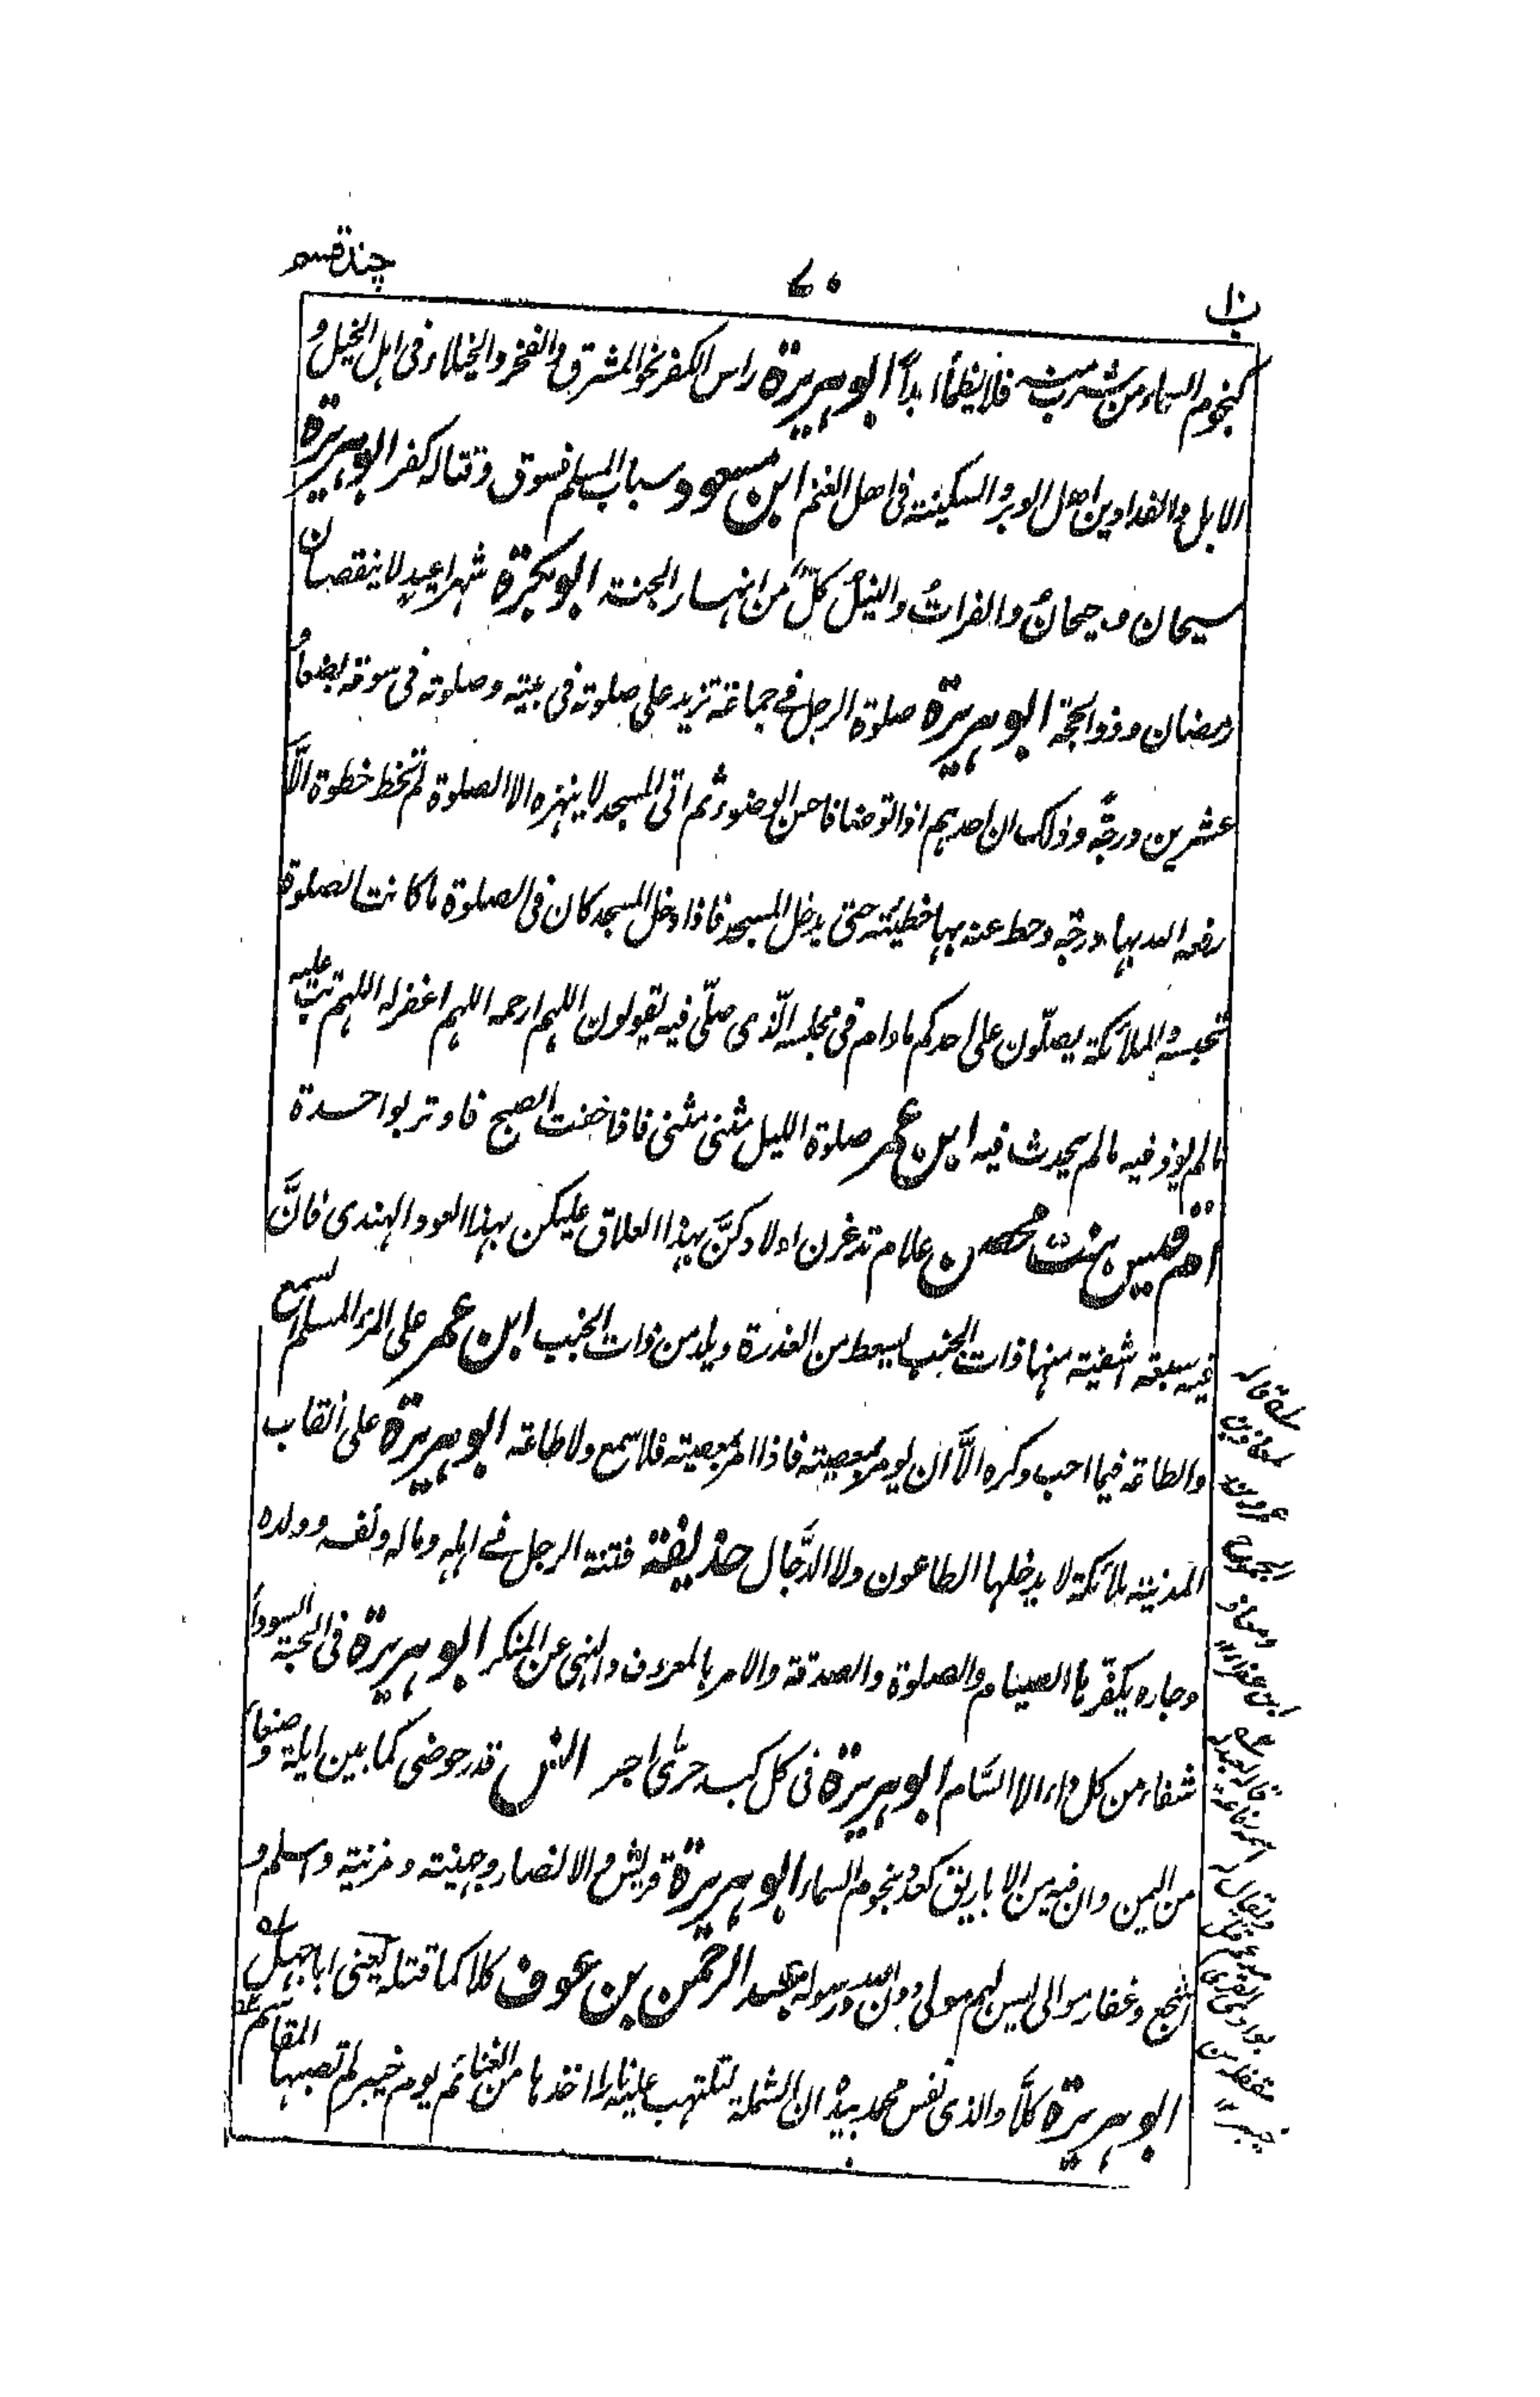 باب
٧٠
چند قسم
كنجوم السماء من شرب منه فلا يظمأ ابداً ابو هريرة راس الكفر نحو المشرق والفخر والخيلاء فى اهل الخيل و
الابل والفدادين اهل الوبر والسكينة فى اهل الغنم ابن مسعود سباب المسلم فسوق وقتاله كفر ابو هريرة
سيحان وجيحانُ والفراتُ والنيلُ كلٌّ من انهار الجنة ابو بكرة شهرا عيدٍ لا ينقصان
رمضان وذو الحجة ابو هريرة صلوة الرجل في جماعة تزيد على صلوته فى بيته وصلوته فى سوقه بضعاً
عشرين درجةً وذلك ان احدهم اذا توضا فاحسن الوضوء ثم اتى المسجد لا ينهزه الا الصلوة لم يخط خطوة الَّا
رفعه الله بها درجة وحط عنه بها خطيئته حتى يدخل المسجد فاذا دخل المسجد كان فى الصلوة ما كانت الصلوة
تحبسه والملائكة يصلّون على احدكم ما دام فى مجلسه الّذى صلّى فيه يقولون اللهم ارحمه اللهم اغفر له اللهم تب عليه
ما لم يوذ فيه ما لم يحدث فيه ابن عمر صلوة الليل مثنى مثنى فاذا خفت الصبح فاوتر بواحدة
ام قيس بنت محصن علام تدغرن اولادكنَّ بهذا العلاق عليكن بهذا العود الهندى فانَّ
فيه سبعة اشفية منها ذات الجنب يسعط من العذرة ويلد من ذات الجنب ابن عمر على المرء المسلم السمع
والطاعة فيما احب وكره الَّا ان يومر بمعصية فاذا امر بمعصية فلا سمع ولا طاعة ابو هريرة على انقاب
المدينة ملائكة لا يدخلها الطاعون ولا الدَّجال حذيفة فتنة الرجل في اهله وماله ونفسه وولده
وجاره يكفّرها الصيام والصلوة والصدقة والامر بالمعروف والنهى عن المنكر ابو هريرة فى الحبة السوداء
شفاء من كل داء الا السّام ابو هريرة فى كل كبد حرّى اجر انس قدر حوضى كما بين ايلة وصنعاء
من اليمن وان فيه من الاباريق كعدد نجوم السماء ابو هريرة قريش والانصار وجهينة ومزينة واسلم و
اشجع وغفار موالى ليس لهم مولى دون الله ورسوله عبد الرحمن بن عوف كلاكما قتله يعنى ابا جهل
ابو هريرة كلَّا والذى نفس محمد بيده ان الشملة لتلتهب عليه نارا اخذها من الغنائم يوم خيبر لم تصبها المقاسم